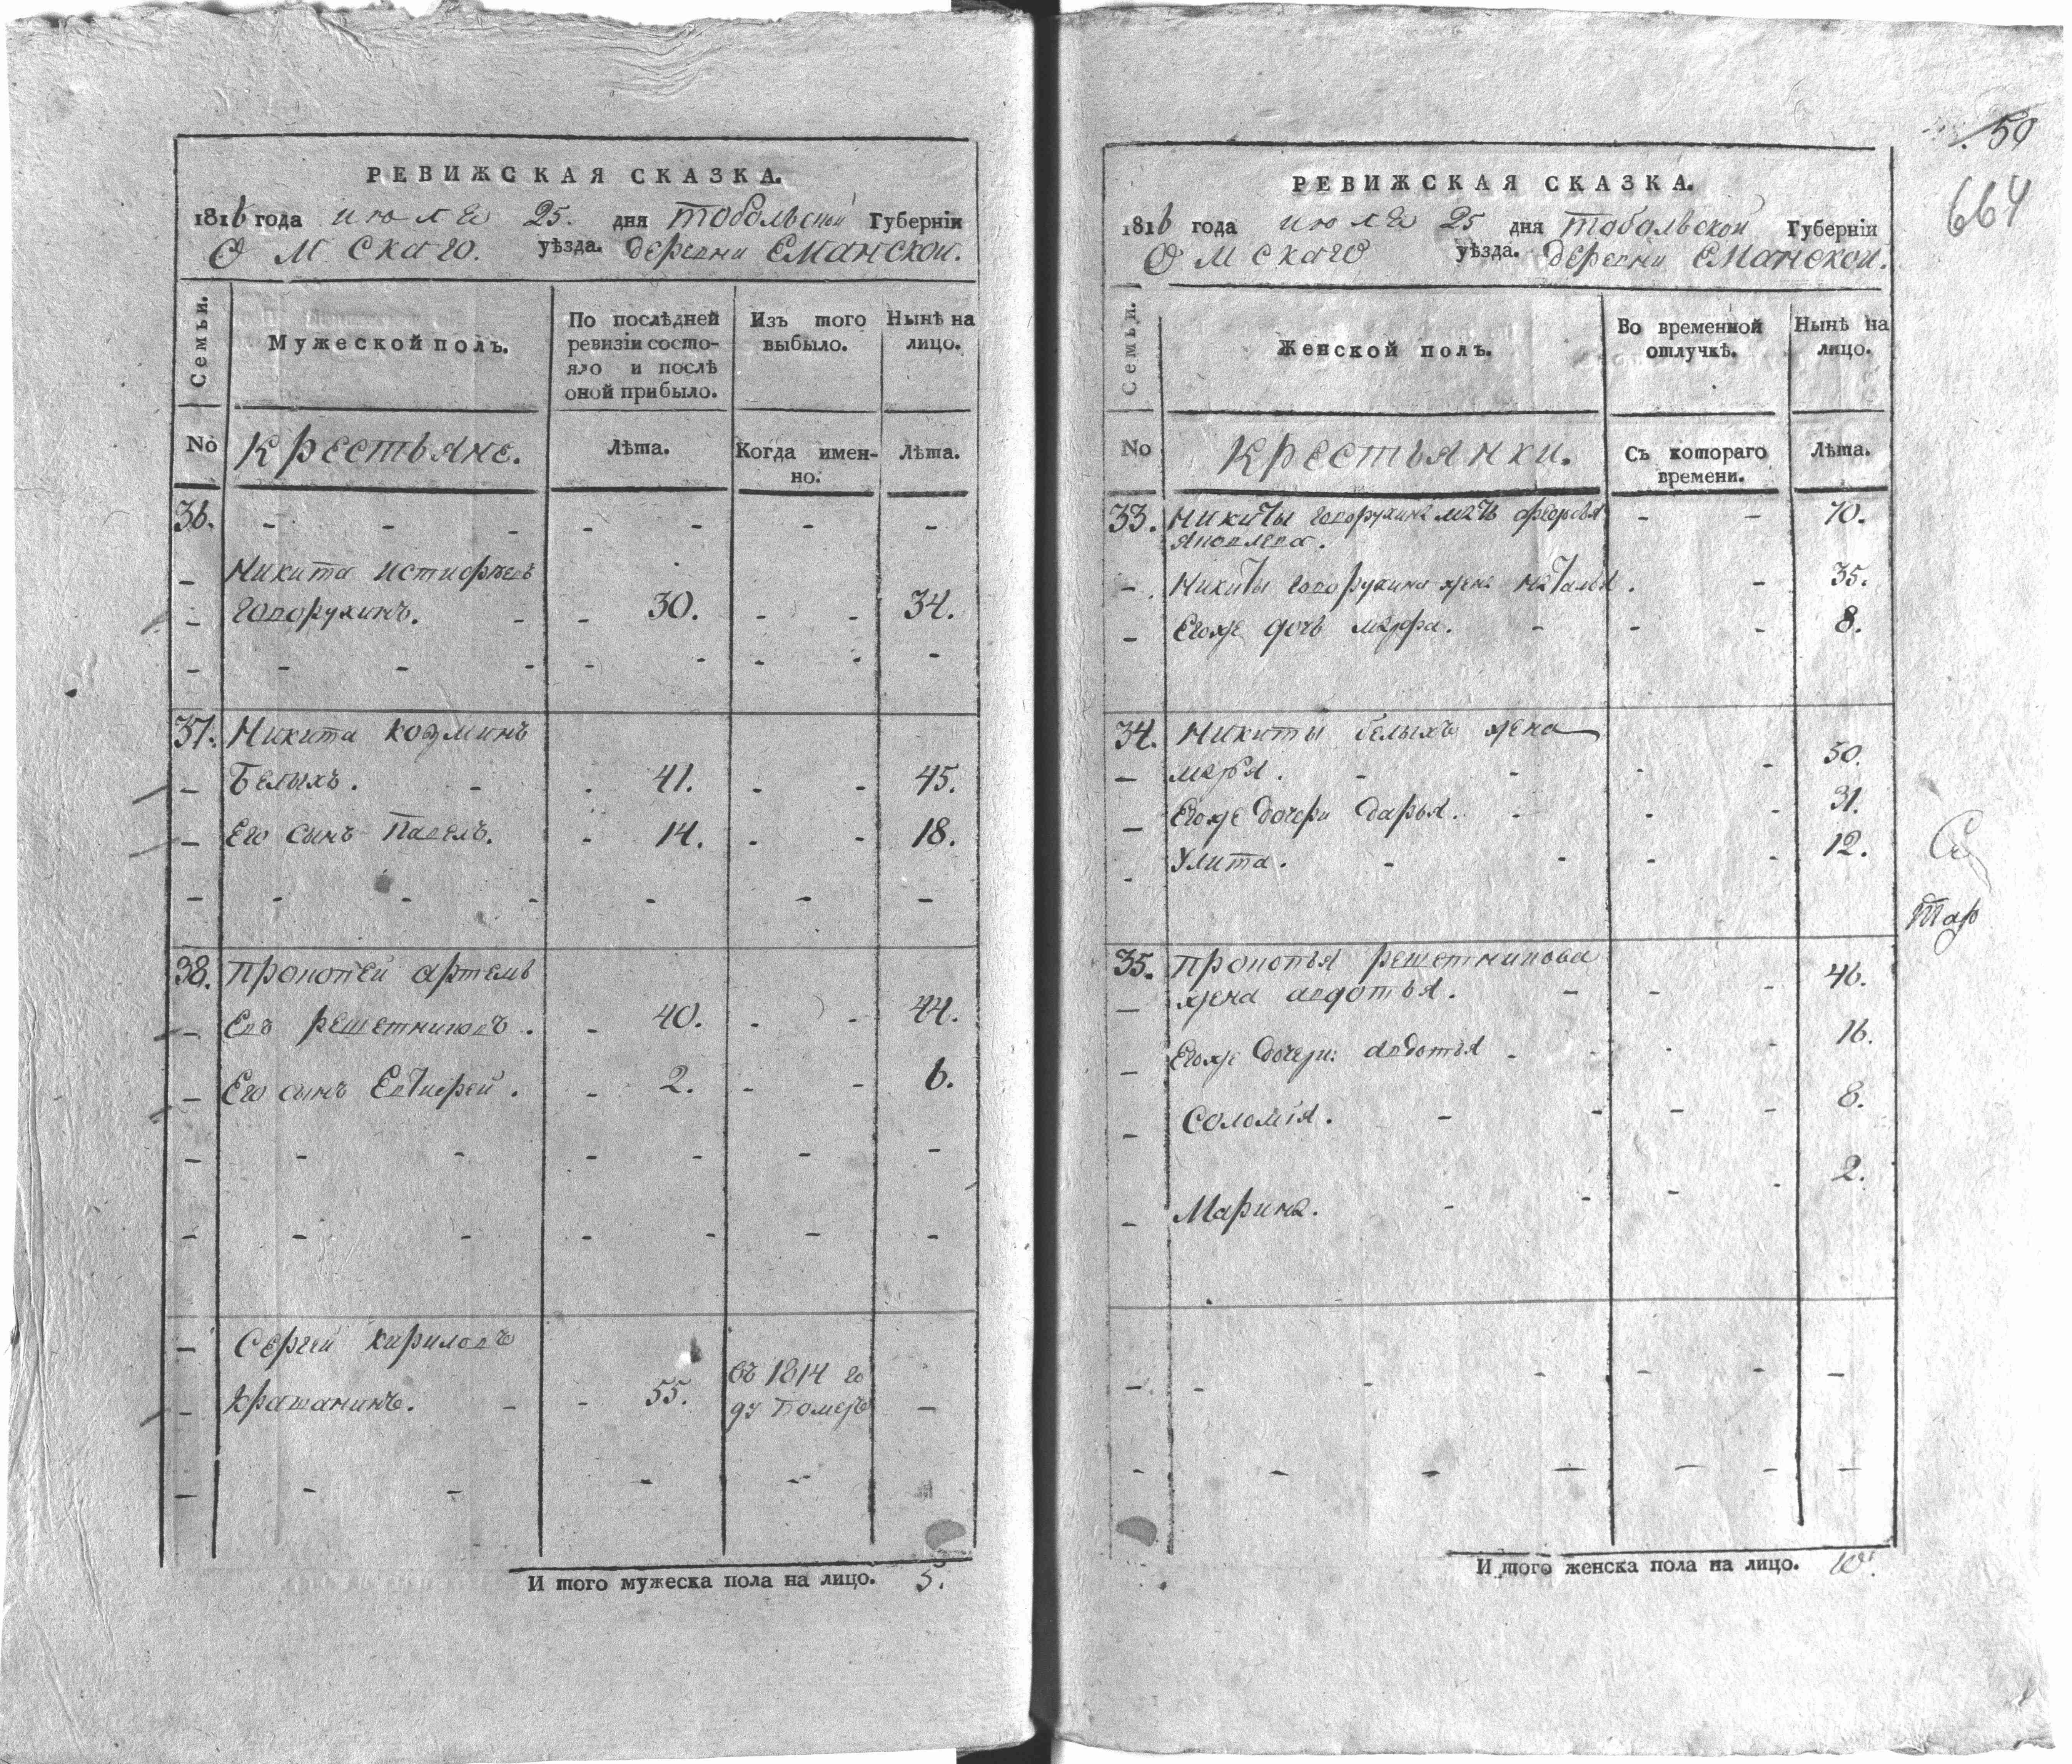 РЕВИЖСКАЯ СКАЗКА.
1816 года июля 25. дня Тобольской Губерніи
Омскаго. уѣзда. деревни Еманской.
Семьи.
Мужеской полъ.
По послѣдней
ревизіи состо-
яло и послѣ
оной прибыло.
Изъ того
выбыло.
Нынѣ на
лицо.
No
Крестьяне.
Лѣта.
Когда имен-
но.
Лѣта.
36. - - - - - - -
- Никита
- Говорухинъ. - - 30. - - 34.
- - - - - - - - -
37. Никита Козминъ
- Белыхъ. - - 41. - - 45.
- Его сынъ Павелъ. - 14. - - 18.
- - - - - - -
38. Прокопей Артемь
- Евъ Решетниковъ. - 40. - - 44.
- Его сынъ Евтифей. - 2. - - 6.
- - - - - - -
- - - - - - -
- Сергей Кириловъ
- Крашанинъ. - - 55. въ 1814 го
ду померъ -
- - - - -
И того мужеска пола на лицо. 5.
59
664
РЕВИЖСКАЯ СКАЗКА.
1816 года июля 25 дня Тобольской Губерніи
Омскаго уѣзда. деревни Еманской.
Семьи.
Женской полъ.
Во временной
отлучкѣ.
Нынѣ на
лицо.
No
Крестьянки.
Съ котораго
времени.
Лѣта.
33. Никиты Говорухина мать - - 70.
Яковлева.
- Никиты Говорухина жена Наталья. - 35.
- Егоже дочь Марфа. - - - 8.
34. Никиты Белыхъ жена
- Марья. - - - - 50.
- Егоже дочери Дарья. - - - 31.
- Улита. - - - - 12.
Тар
35. Прокопья Решетникова
- жена Авдотья. - - - 46.
- Егоже дочери: Авдотья - - - 16.
- Соломія. - - - - 8.
- Марина. - - - - 2.
- - - - - - -
- - - - - - -
И того женска пола на лицо. 10.